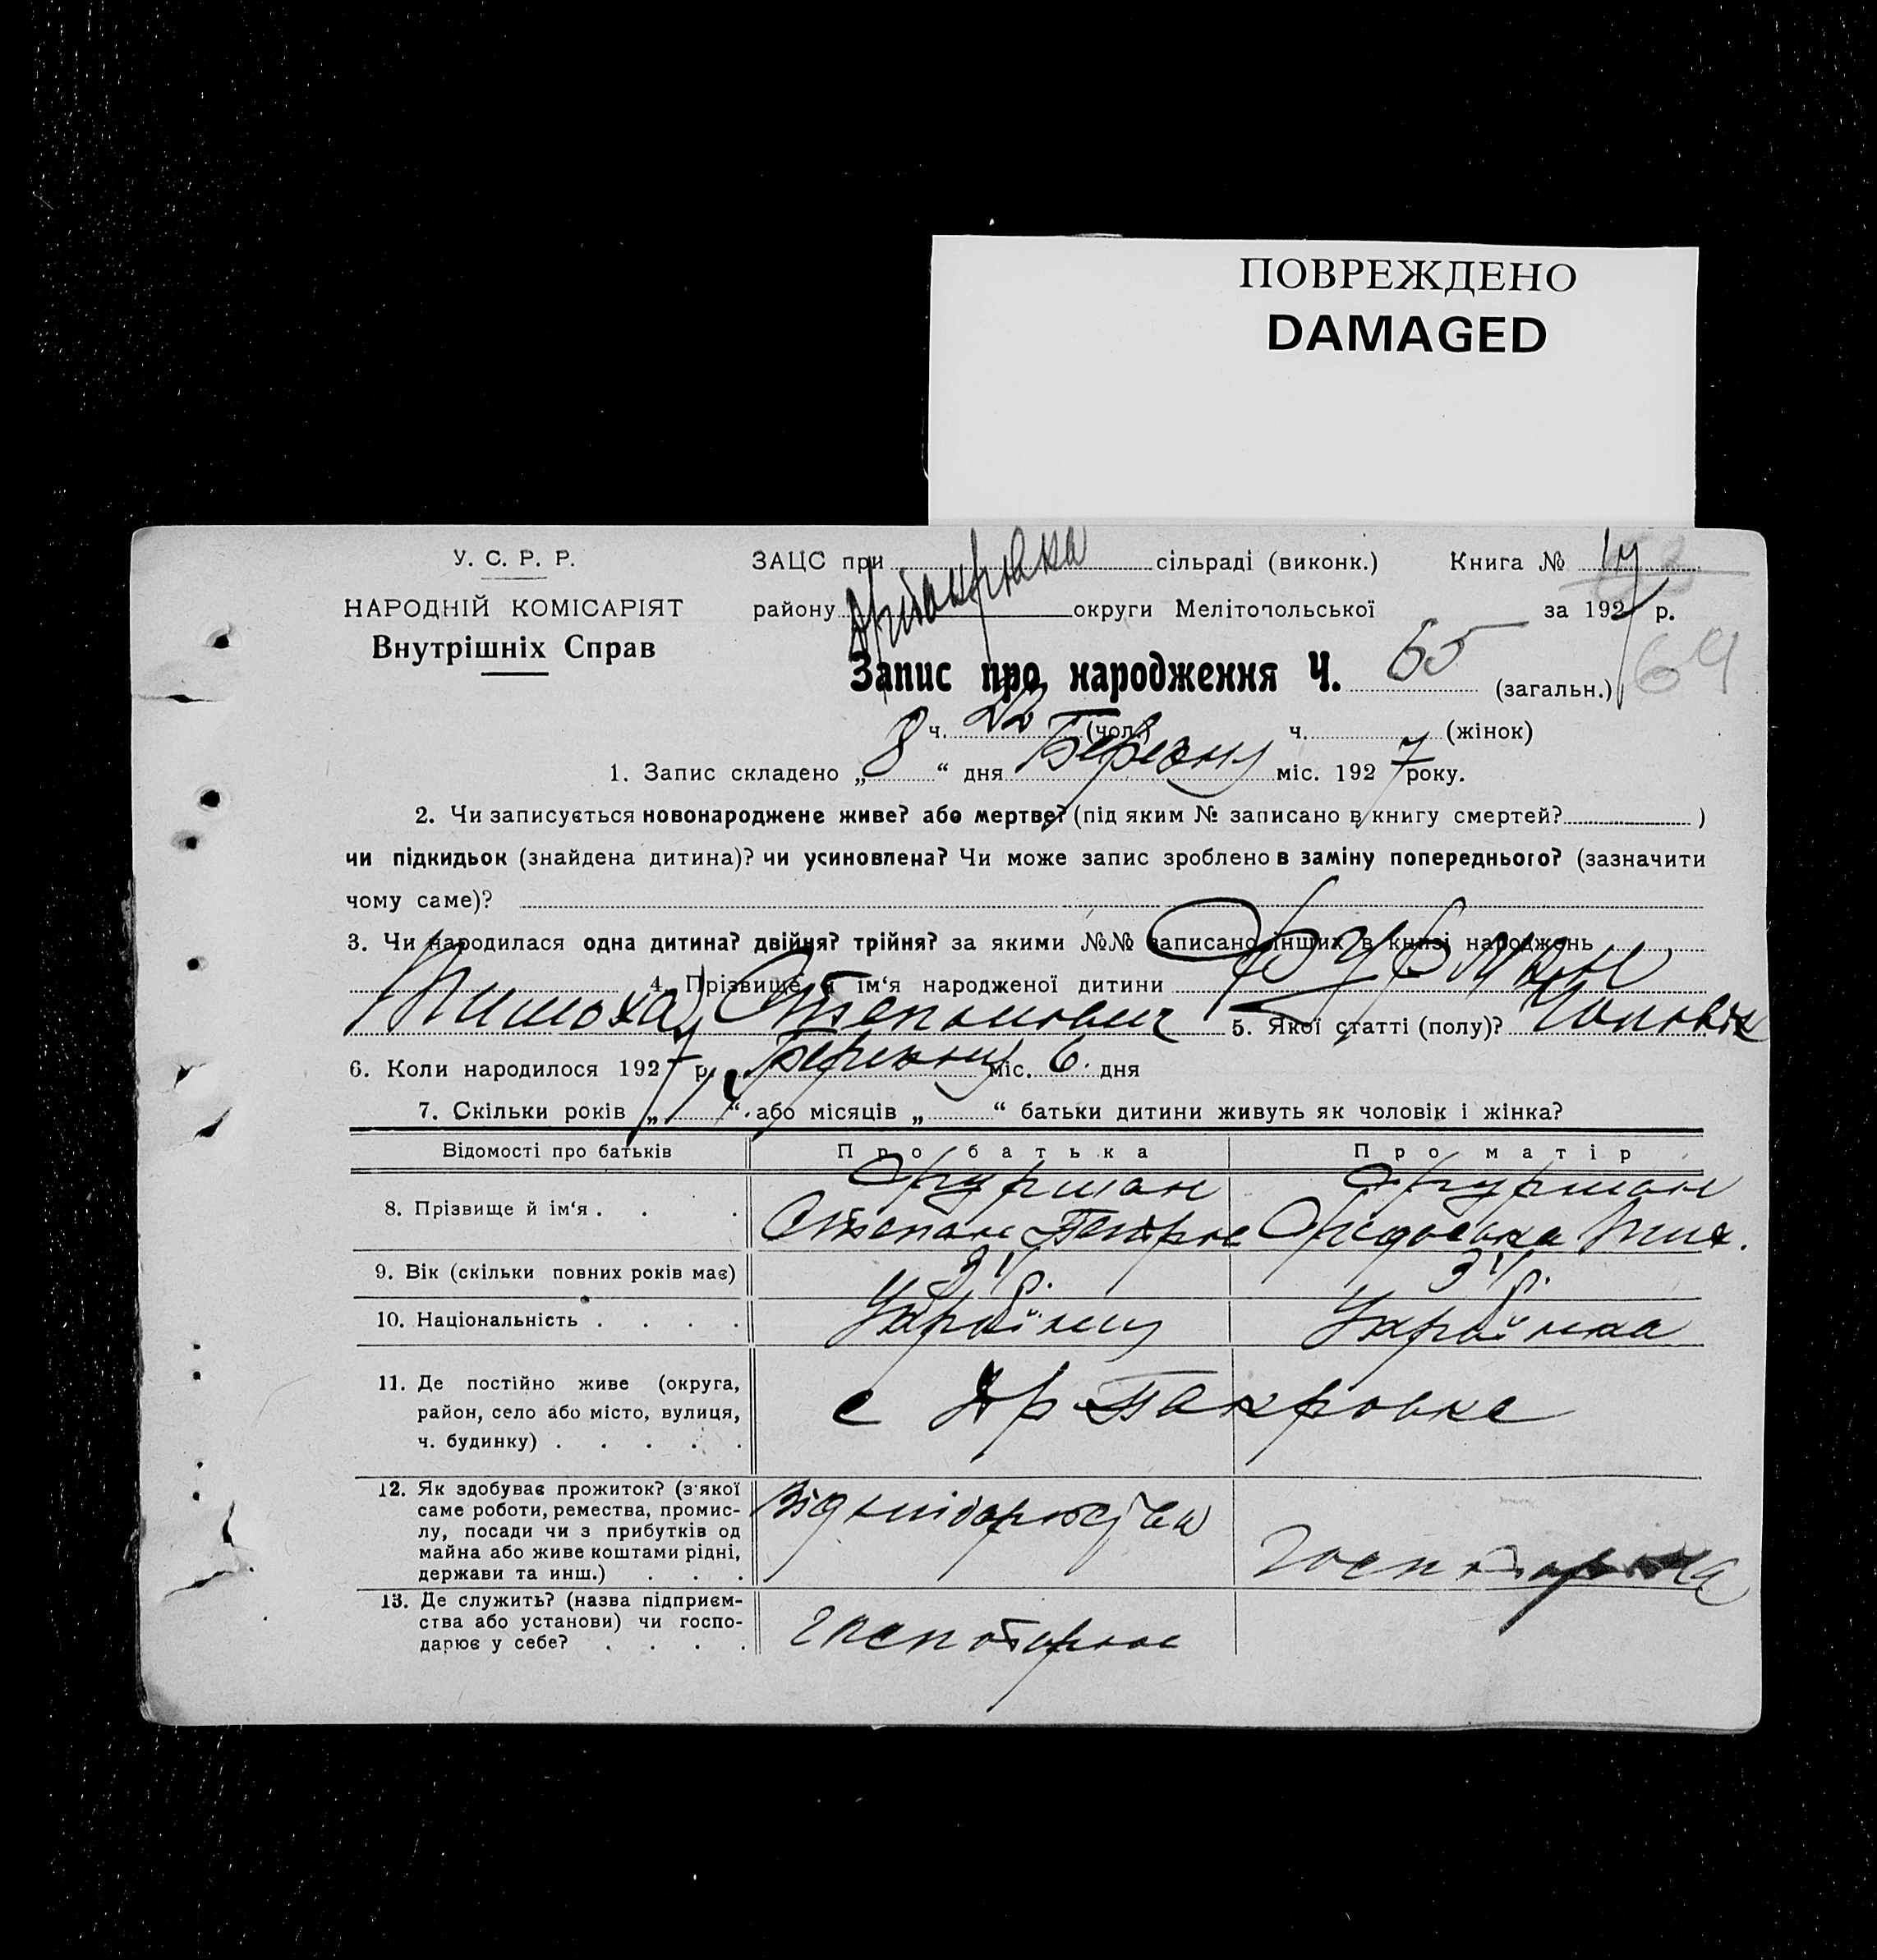 ПОВРЕЖДЕНО
DAMAGED
У. С. Р. Р.
НАРОДНІЙ КОМІСАРІЯТ
Внутрішніх Справ
ЗАЦС при сільраді (виконк.) Книга №
району округи Мелітопольської за 1927 р.
Запис про народження Ч. 65 (загальн.) 64
ч. 22 (чол.) ч. (жінок)
1. Запис складено „ 8 “ дня Березня міс. 1927 року.
2. Чи записується новонароджене живе? або мертве? (під яким № записано в книгу смертей? )
чи підкидьок (знайдена дитина)? чи усиновлена? Чи може запис зроблено в заміну попереднього? (зазначити
чому саме)?
3. Чи народилася одна дитина? двійня? трійня? за якими №№ записано інших в книзі народжень
4. Прізвище й ім‘я народженої дитини Фурман
Степанович 5. Якої статті (полу)? Чоловік
6. Коли народилося 1927 р. Березня міс. 6. дня
7. Скільки років „ “ або місяців „ “ батьки дитини живуть як чоловік і жінка?
Відомості про батьків Про батька Про матір
8. Прізвище й ім‘я . . . Фурман Фурман
Степан Петров Мих.
9. Вік (скільки повних років має) 31 р. 31 р.
10. Національність . . . . Українец Українка
11. Де постійно живе (округа,
район, село або місто, вулиця,
ч. будинку) . . . . .
с
12. Як здобуває прожиток? (з‘якої
саме роботи, ремества, промис-
лу, посади чи з прибутків од
майна або живе коштами рідні,
держави та инш.) . . .
13. Де служить? (назва підприєм-
ства або установи) чи госпо-
дарює у себе? . . . .